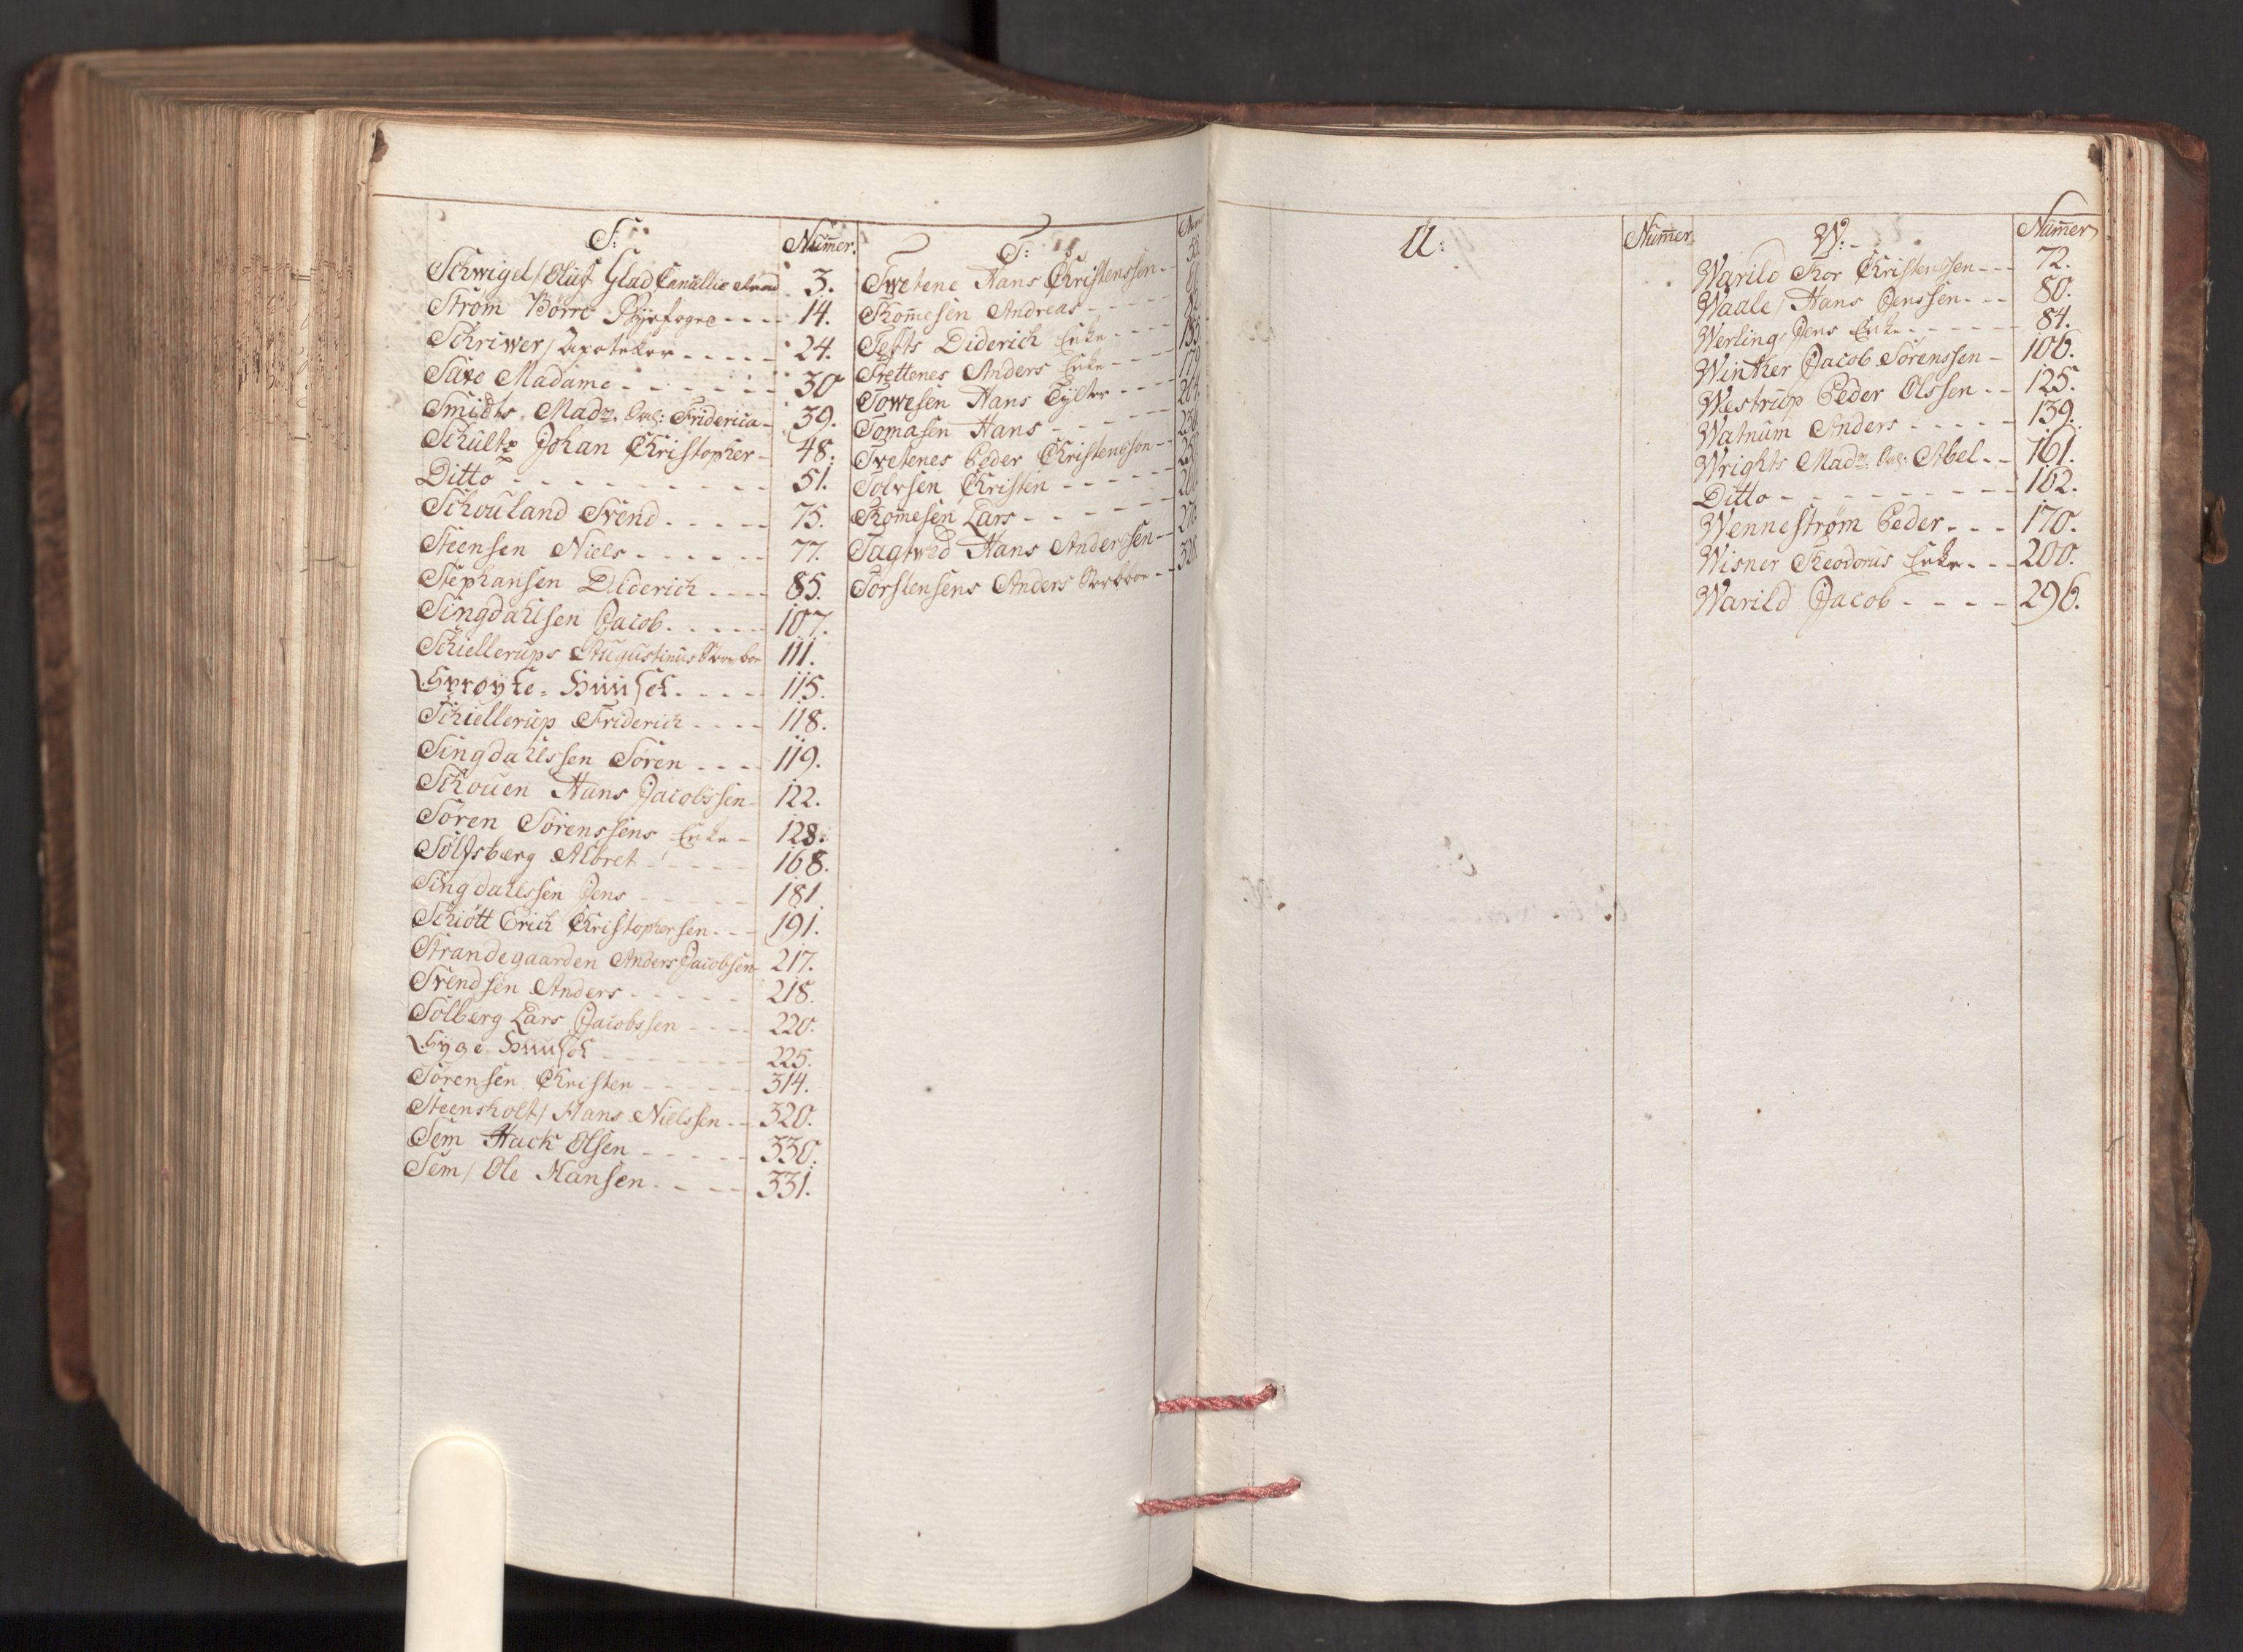 S:
Nummer.
Schwigel / Oluf Glad Cancellie
3.
Strøm Børre Byefoged
14.
Schriwer / Apoteker
24.
Saxe Madame
30
Smidts Mad.m Friderica
39.
Schultz Johan Christopher
48.
Ditto
51.
Schouland Svend
75.
Steensen Niels
77.
Stephansen Diderich
85.
Singdahlsen Jacob
107.
Schiellerups Augustinus
111.
Sprøyte-Huuset
115.
Schiellerup Friderich
118.
Singdahlssen Søren
119.
Schouen Hans Jacobssen
122.
Søren Sørenssens Enke
128.
Solfsberg Albret
168.
Singdahlssen Jens
181
Schiøtt Erich Christophersen
191.
Strandegaarden Anders Jacobsen
217.
Svendsen Anders
218.
Solberg Lars Jacobssen
220.
Syge Huuset
225.
Sørensen Christen
314.
Steensholt / Hans Nielssen
320.
Sem Hack Olsen
330.
Sem / Ole Hansen
331.
T:
Tvetene Hans Christenssen
Thommesen Andreas
Tefts Diderich Enke
Trettenes Anders Enke
Towesen Hans
Tomasen Hans
Tvetenes Peder Christenssen
Tolvsen Christen
Thommesen Lars
Tagtved Hans Andersen
Torstensens Anders
U:
Nummer
W:
Nummer
Warild Thor Christenssen
72.
Waale / Hans Jenssen
80.
Werling Jens Enke
84.
Winther Jacob Sørenssen
106.
Westrup Peder Olssen
125.
Watnum Anders
139.
Wrights Mad.m Abel
161.
Ditto
162.
Wennestrøm Peder
170.
Wisner Theodorus Enke
200.
Warild Jacob
296.